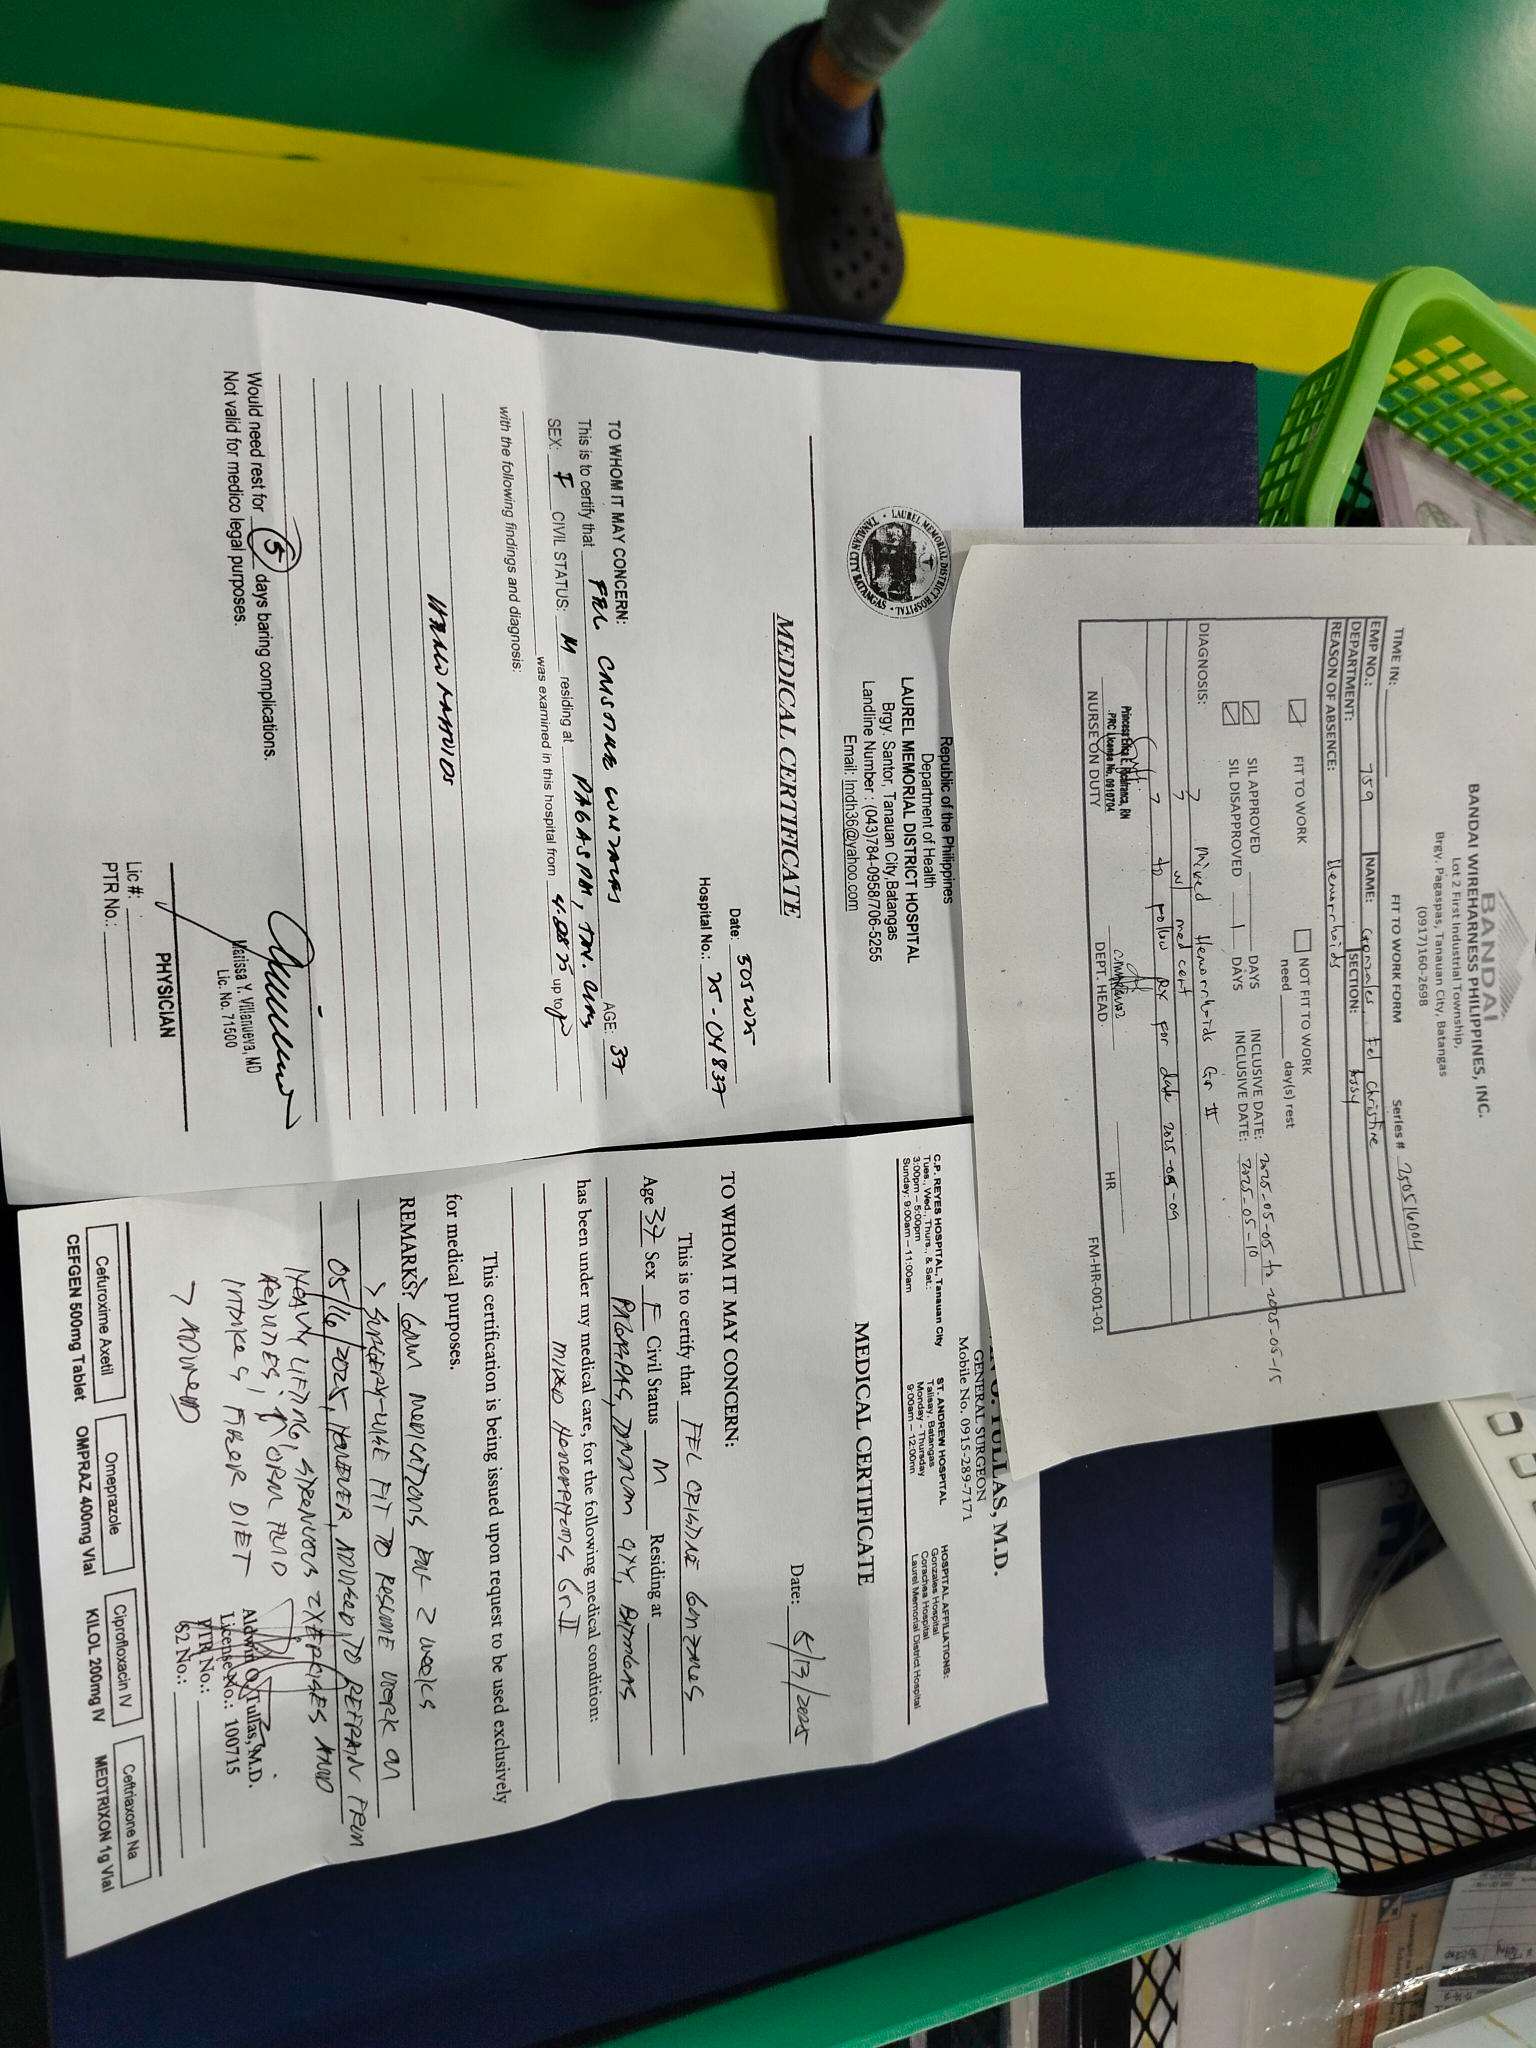 BANDAI
BANDAI WIREHARNESS PHILIPPINES, INC.
Lot 2 First Industrial Township,
Brgy. Pagaspas, Tanauan City, Batangas
(0917)1160-2698
FIT TO WORK FORM
Series # 250516004
TIME IN:
EMP NO.: 759 NAME: Gonzales, Fel Christine
DEPARTMENT: SECTION: Assy
REASON OF ABSENCE: Hemorrhoids
FIT TO WORK NOT FIT TO WORK
need day(s) rest
SIL APPROVED DAYS INCLUSIVE DATE: 2025-05-05 to 2025-05-15
SIL DISAPPROVED 1 DAYS INCLUSIVE DATE: 2025-05-10
DIAGNOSIS: > Mixed Hemorrhoids Gr II
> w/ med cert
> to follow Rx for date 2025-05-09
Princess Erica E. RN
PRC License No. 0910704
NURSE ON DUTY DEPT. HEAD HR
FM-HR-001-01
Republic of the Philippines
Department of Health
LAUREL MEMORIAL DISTRICT HOSPITAL
Brgy. Santor, Tanauan City,Batangas
Landline Number : (043)784-0958/706-5255
Email: lmdh36@yahoo.com
LAUREL MEMORIAL DISTRICT HOSPITAL
TANAUAN CITY BATANGAS
MEDICAL CERTIFICATE
Date: 5052025
Hospital No.: 25-04837
TO WHOM IT MAY CONCERN:
This is to certify that FEL CRISTINE GONZALES AGE: 37
SEX: F CIVIL STATUS: M residing at PAGASPAS, TAN. CITY
was examined in this hospital from up to
with the following findings and diagnosis:
Would need rest for 5 days baring complications.
Not valid for medico legal purposes.
Marissa Y. Villanueva, MD
Lic. No. 71500
PHYSICIAN
Lic #:
PTR No.:
O. TULLAS, M.D.
GENERAL SURGEON
Mobile No. 0915-289-7171
C.P. REYES HOSPITAL, Tanauan City
Tues., Wed., Thurs., & Sat.:
3:00pm – 5:00pm
Sunday: 9:00am – 11:00am
ST. ANDREW HOSPITAL
Talisay, Batangas
Monday - Thursday
9:00am – 12:00nn
HOSPITAL AFFILIATIONS:
Gonzales Hospital
Corachea Hospital
Laurel Memorial District Hospital
MEDICAL CERTIFICATE
Date: 5/13/2025
TO WHOM IT MAY CONCERN:
This is to certify that FEL CRISTINE GONZALES
Age 37 Sex F Civil Status M Residing at
PAGASPAS, TANAUAN CITY, BATANGAS
has been under my medical care, for the following medical condition:
MIXED HEMORRHOIDS, Gr II
This certification is being issued upon request to be used exclusively
for medical purposes.
REMARKS: GIVEN MEDICATIONS FOR 2 WEEKS
> SURGERY-WISE FIT TO RESUME WORK ON
05/16/2025, HOWEVER, ADVISED TO REFRAIN FROM
HEAVY LIFTING, STRENUOUS EXERCISES AND
ACTIVITIES; ↑ ORAL FLUID
INTAKES, FIBER DIET
> ADVISED
Aldwin O. Tullas, M.D.
License No.: 100715
PTR No.:
S2 No.:
Cefuroxime Axetil
CEFGEN 500mg Tablet
Omeprazole
OMPRAZ 400mg Vial
Ciprofloxacin IV
KILOL 200mg IV
Ceftriaxone Na
MEDTRIXON 1g Vial